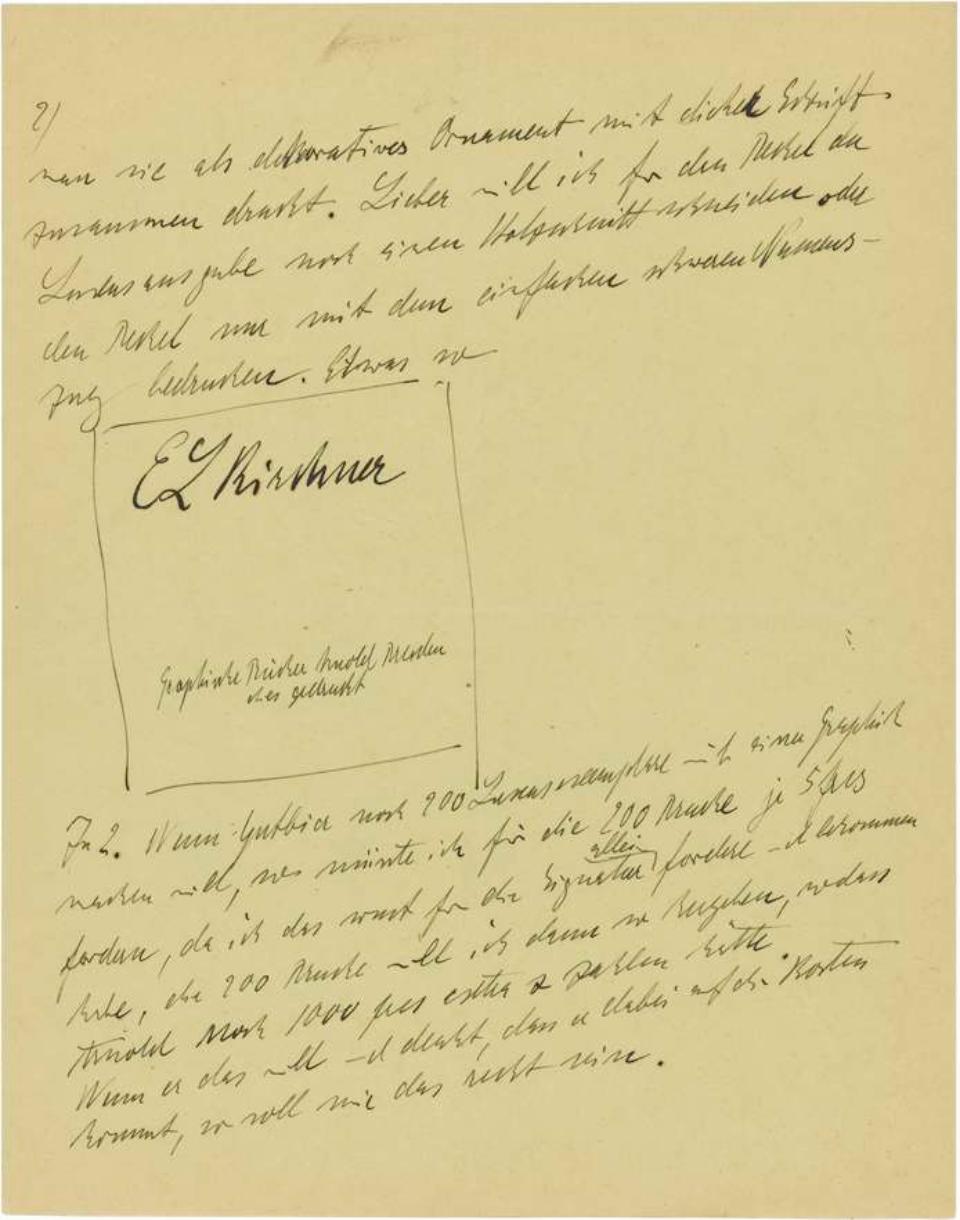 2)
man sie als dekoratives Ornament mit dicker Schrift
zusammen druckt. Lieber will ich für den Deckel der
Luxusausgabe noch einen Holzschnitt schneiden oder
den Deckel nur mit dem einfachen schweren Namens-
zug bedrucken. Etwas so
EL Kirchner
Graphische Bücher Arnold Dresden
dies gedruckt
Zu 2. Wenn Gutbier noch 200 Luxusexemplare mit einer Graphik
machen will, so müsste ich für die 200 Drucke je 5 frcs
fordern, da ich das sonst für die Signatur allein fordere und bekommen
habe, die 200 Drucke will ich dann so hergeben, sodass
Arnold noch 1000 frcs extra z zahlen hätte.
Wenn er das will und denkt, dass er dabei auf die Kosten
kommt, so soll mir das recht sein.